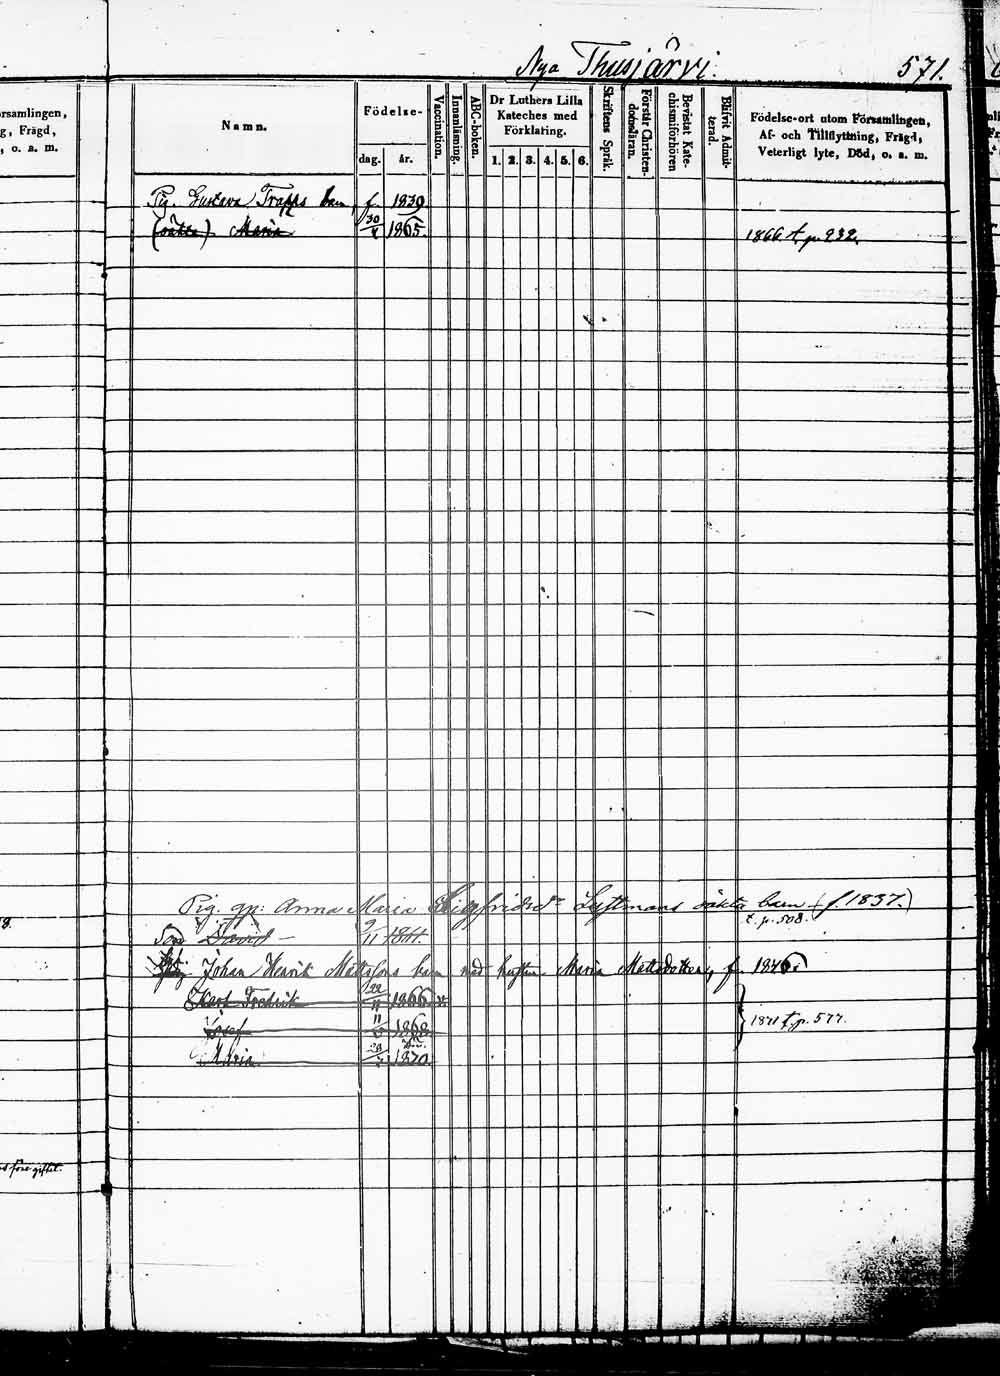 Nya Thusjärvi. 571.
Församlingen,
g, Frägd,
, o. a. m.
Namn.
Födelse-
dag. år.
Vaccination.
Innanläsning.
ABC-boken.
Dr Luthers Lilla
Kateches med
Förklaring.
1. 2. 3. 4. 5. 6.
Skriftens Språk.
Förstår Christen-
domsläran.
Bevistat Kate-
chismiförhören
Blifvit Admit-
terad.
Födelse-ort utom Församlingen,
Af- och Tillflyttning, Frägd,
Veterligt lyte, Död, o. a. m.
Pig. Gustava Trapps barn, f. 1839
(oäkta) Maria 30 1865. 1866 t. p. 232.
Pig. gp: Anna Maria Sigfridsdr Lustmans oäkta barn (f. 1837.)
t. p. 508.
Son David 9/11 1861.
Johan Henrik Mattssons barn med hustrun Maria Mattsdotter, f. 1846.
Karl Fredrik 22/11 1866 v.
Josef 11 1868 1871 t. p. 577.
Maria 23 1870.
före giftet.